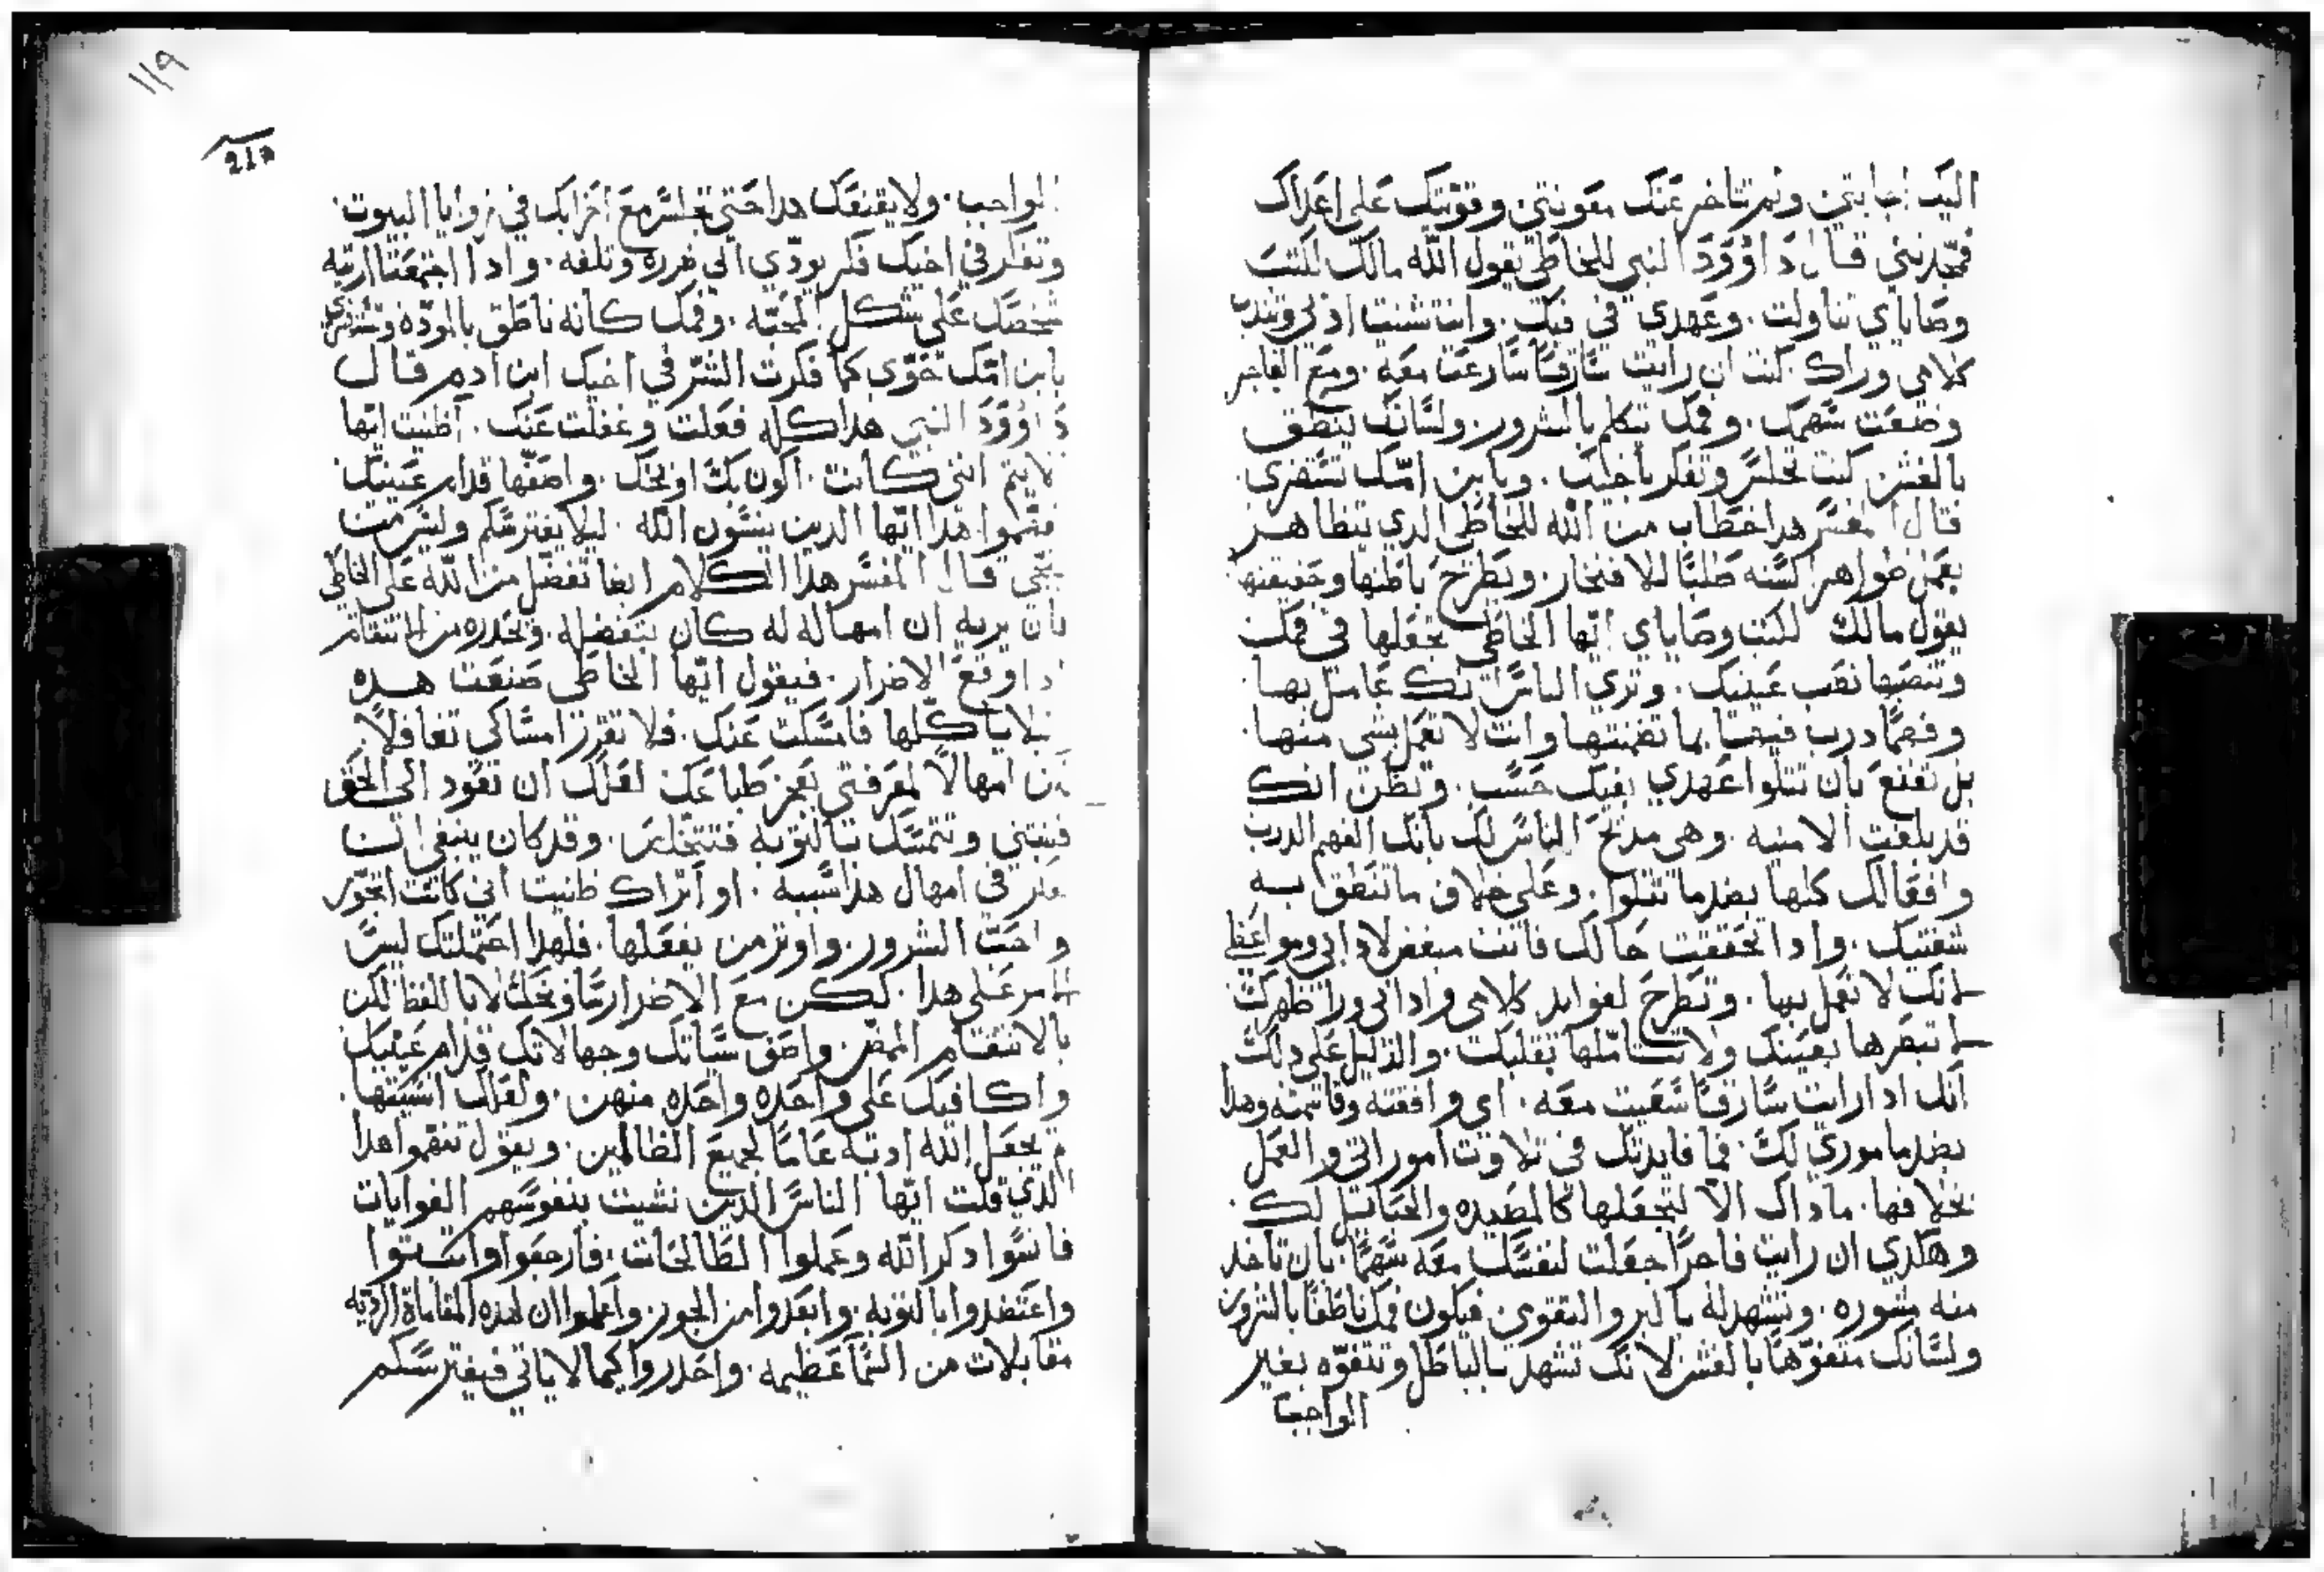 اليك اجابتي ولم تتاخر عنك معونتي وقوتيك على اعداك
فمجدتني قال داوود النبي للخاطي يقول الله مالك لكتب
وصاياي تناولت. وعهدي في فيك. وانت شنيت ادبي ونبدت
كلامي وراك. كنت ان رايت سارقًا سارعت معه. ومع الفاجر
وضعت سهمك. وفمك تكلم بالشرور. ولسانك ينطق
بالغش. كنت تجلس وتفكر باخيك. وبابن امك تشتفري.
قال المفسر هدا خطاب من الله للخاطي الدي يتظاهر
يقول مالك لكتب وصاياي ايها الخاطي تجعلها في فمك
وتنصبها نصب عينيك. وتري الناس انك عامل بها.
وفهمًا درب فيهما بما تضمنتها وانت لا تعمل بشي منها.
بل تقنع بان تتلوا عهدي بفيك حسب. وتظن انك
قد بلغت الامنيه. وهي مدح الناس لك بانك الفهم الدرب
وافعالك كلها بضد ما تتلوا. وعلي خلاف ما تنطق به
شفتيك. وادا تحققت حالك فانت مبغض لادابي ومواعظي
لانك لا تعمل بها. وتطرح لفوايد كلامي وادابي ورا ظهرك
لا تبصرها بعينك ولا تتاملها بقلبك. والدليل على دلك
انك ادا رايت سارقًا سعيت معه. اي وافقته وقاسمته وهدا
بضد ماموري لك. فما فايدتك في تلاوت اموراتي والعمل
بخلافها. ما داك الا لتجعلها كالمصيده والحبايل لك.
وهكدي ان رايت فاجرًا جعلت لنفسك معه سهمًا. بان تاخد
منه مشوره. وتشهد له بالبر والتقوي. فيكون فمك ناطقًا بالشرور
ولسانك متفوهًا بالغش لانك تشهد بالباطل وتتفوه بغير
الواجب
119
217
الواجب. ولا يقنعك هدا حتي تجلس مع احزابك في زوايا البيوت.
وتفكر في اخيك فكر يودي الي ضرره وتلفه. وادا اجتمعتما اريته
شخصك على شكل المحبه. وفمك كانه ناطق بالموده وتشتفري
بابن امك تحوي كما فكرت الشر في اخيك ابن ادم قال
داوود النبي هدا كله فعلت وغفلت عنك. اظنيت ايها
الاثيم انني كانت. اكون بك اوبخك. واصفها قدام عينيك
فتفهموا هدا ايها الدين ينسون الله. ليلا يفترسكم وليس من
ينجي قال المفسر هدا الكلام ايضا تفضل من الله على الخاطي
بان يريه ان امهاله له كان بتفضله. ويحدره من الانتقام
ادا وقع الاضرار. فيقول ايها الخاطي صنعت هده
البلايا كلها فامسكت عنك. فلا تقرر امساكي تغافلًا.
لكن امهالًا لمعرفتي بعجز طباعك لعلك ان تعود الى الحق
فينيتني وتتمسك بالتوبه فتتخلص. وقد كان ينبغي ان
تفكر في امهال هدا سببه. او اتراك ظنيت اني كانت اتجور
واحب الشرور. واوثر من يفعلها. فلهدا احتملتك ليس
الامر على هدا. لكن مع الاضرار ساوبخك لا باللفظ لكن
بالانتقام الممض. واصف سيياتك وجهالاتك قدام عينيك
واكافيك على واحده واحده منهن. ولعلك انسيتها.
ثم يجعل الله ادبه عامًا لجميع الظالمين. ويقول تفهموا هدا
الدي قلت ايها الناس الدين نشيت بنفوسهم الغوايات
فانسوا دكر الله وعملوا الطالحات. فارجعوا وانتبهوا
واعتضدوا بالتوبه. وابعدوا من الجور. واعلموا ان لهده المقاماة الرديه
مقابلات من السما عظيمه. واحدروا كيما لا ياتي فيفترسكم